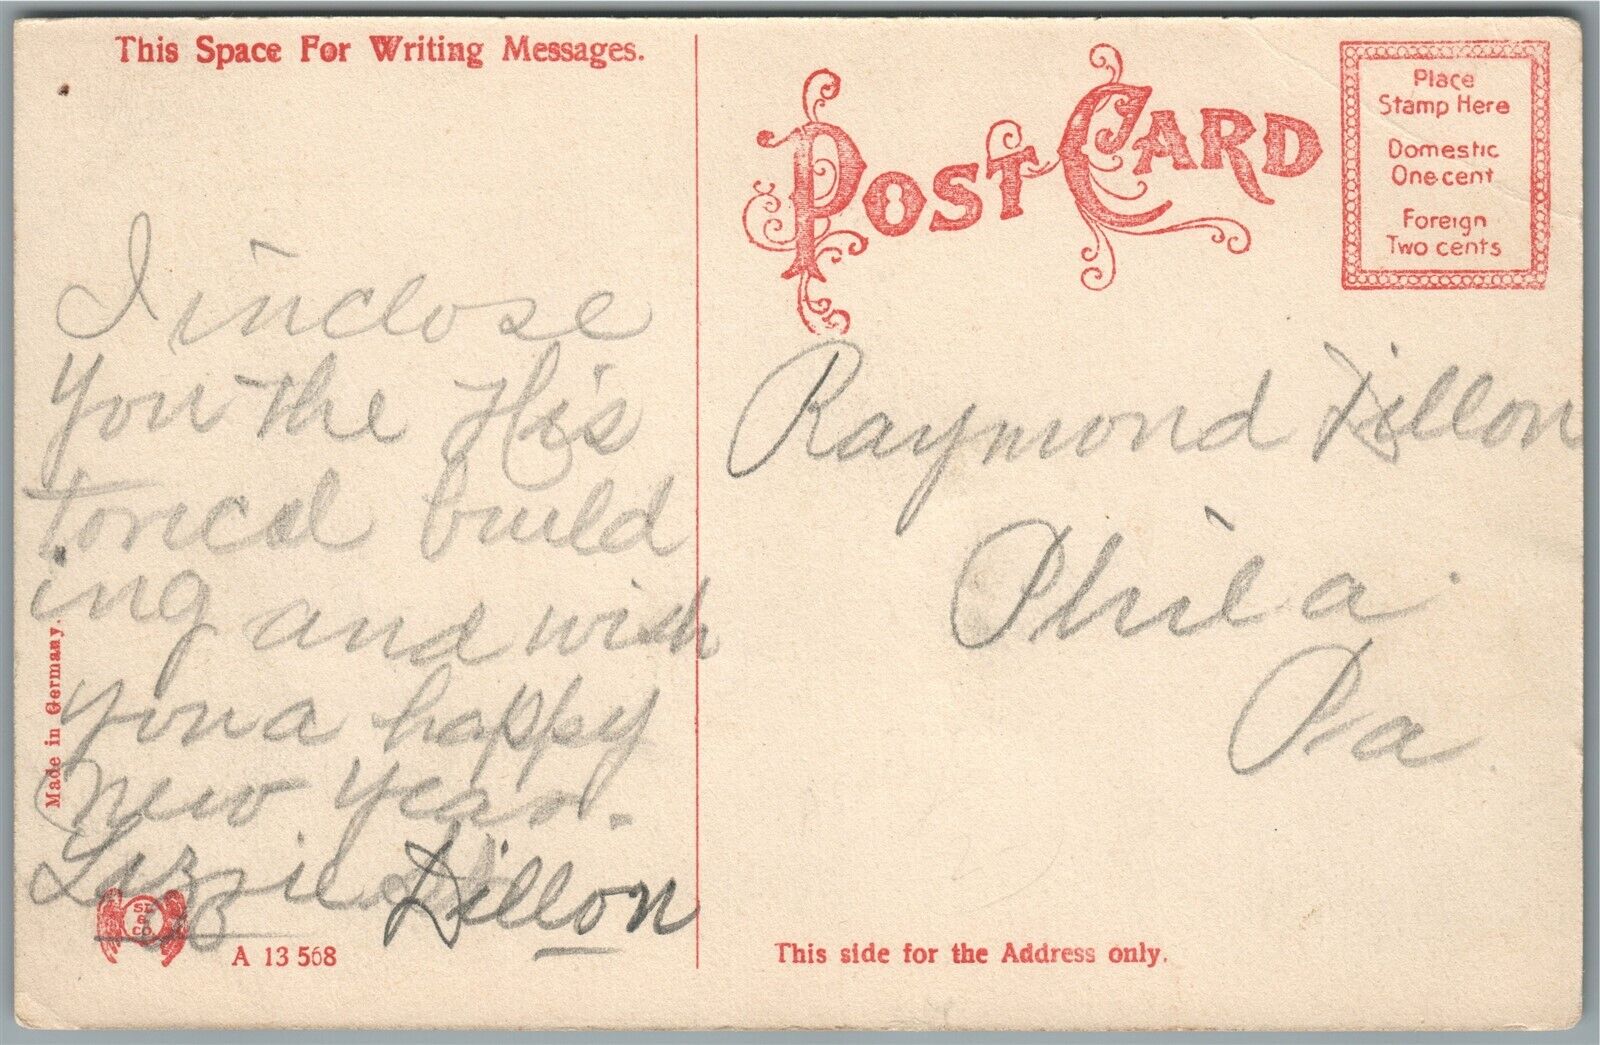 This Space For Writing Messages.
I inclose
you the His
torical build
ing and wish
you a happy
new year.
Lizzie Dillon
Made in Germany.
ST.
&
CO.
A 13 568
POST CARD
Place
Stamp Here
Domestic
One cent
Foreign
Two cents
Raymond Dillon
Phila
Pa
This side for the Address only.